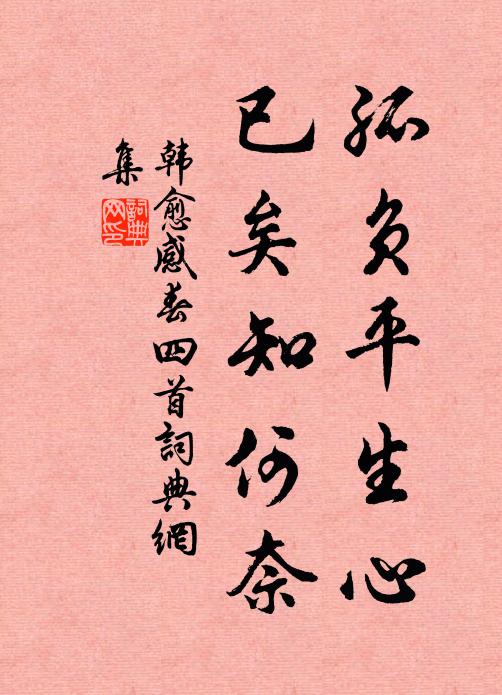 孤负平生心
已矣知何奈
韩愈感春四首詞典網
集
詞典
网印